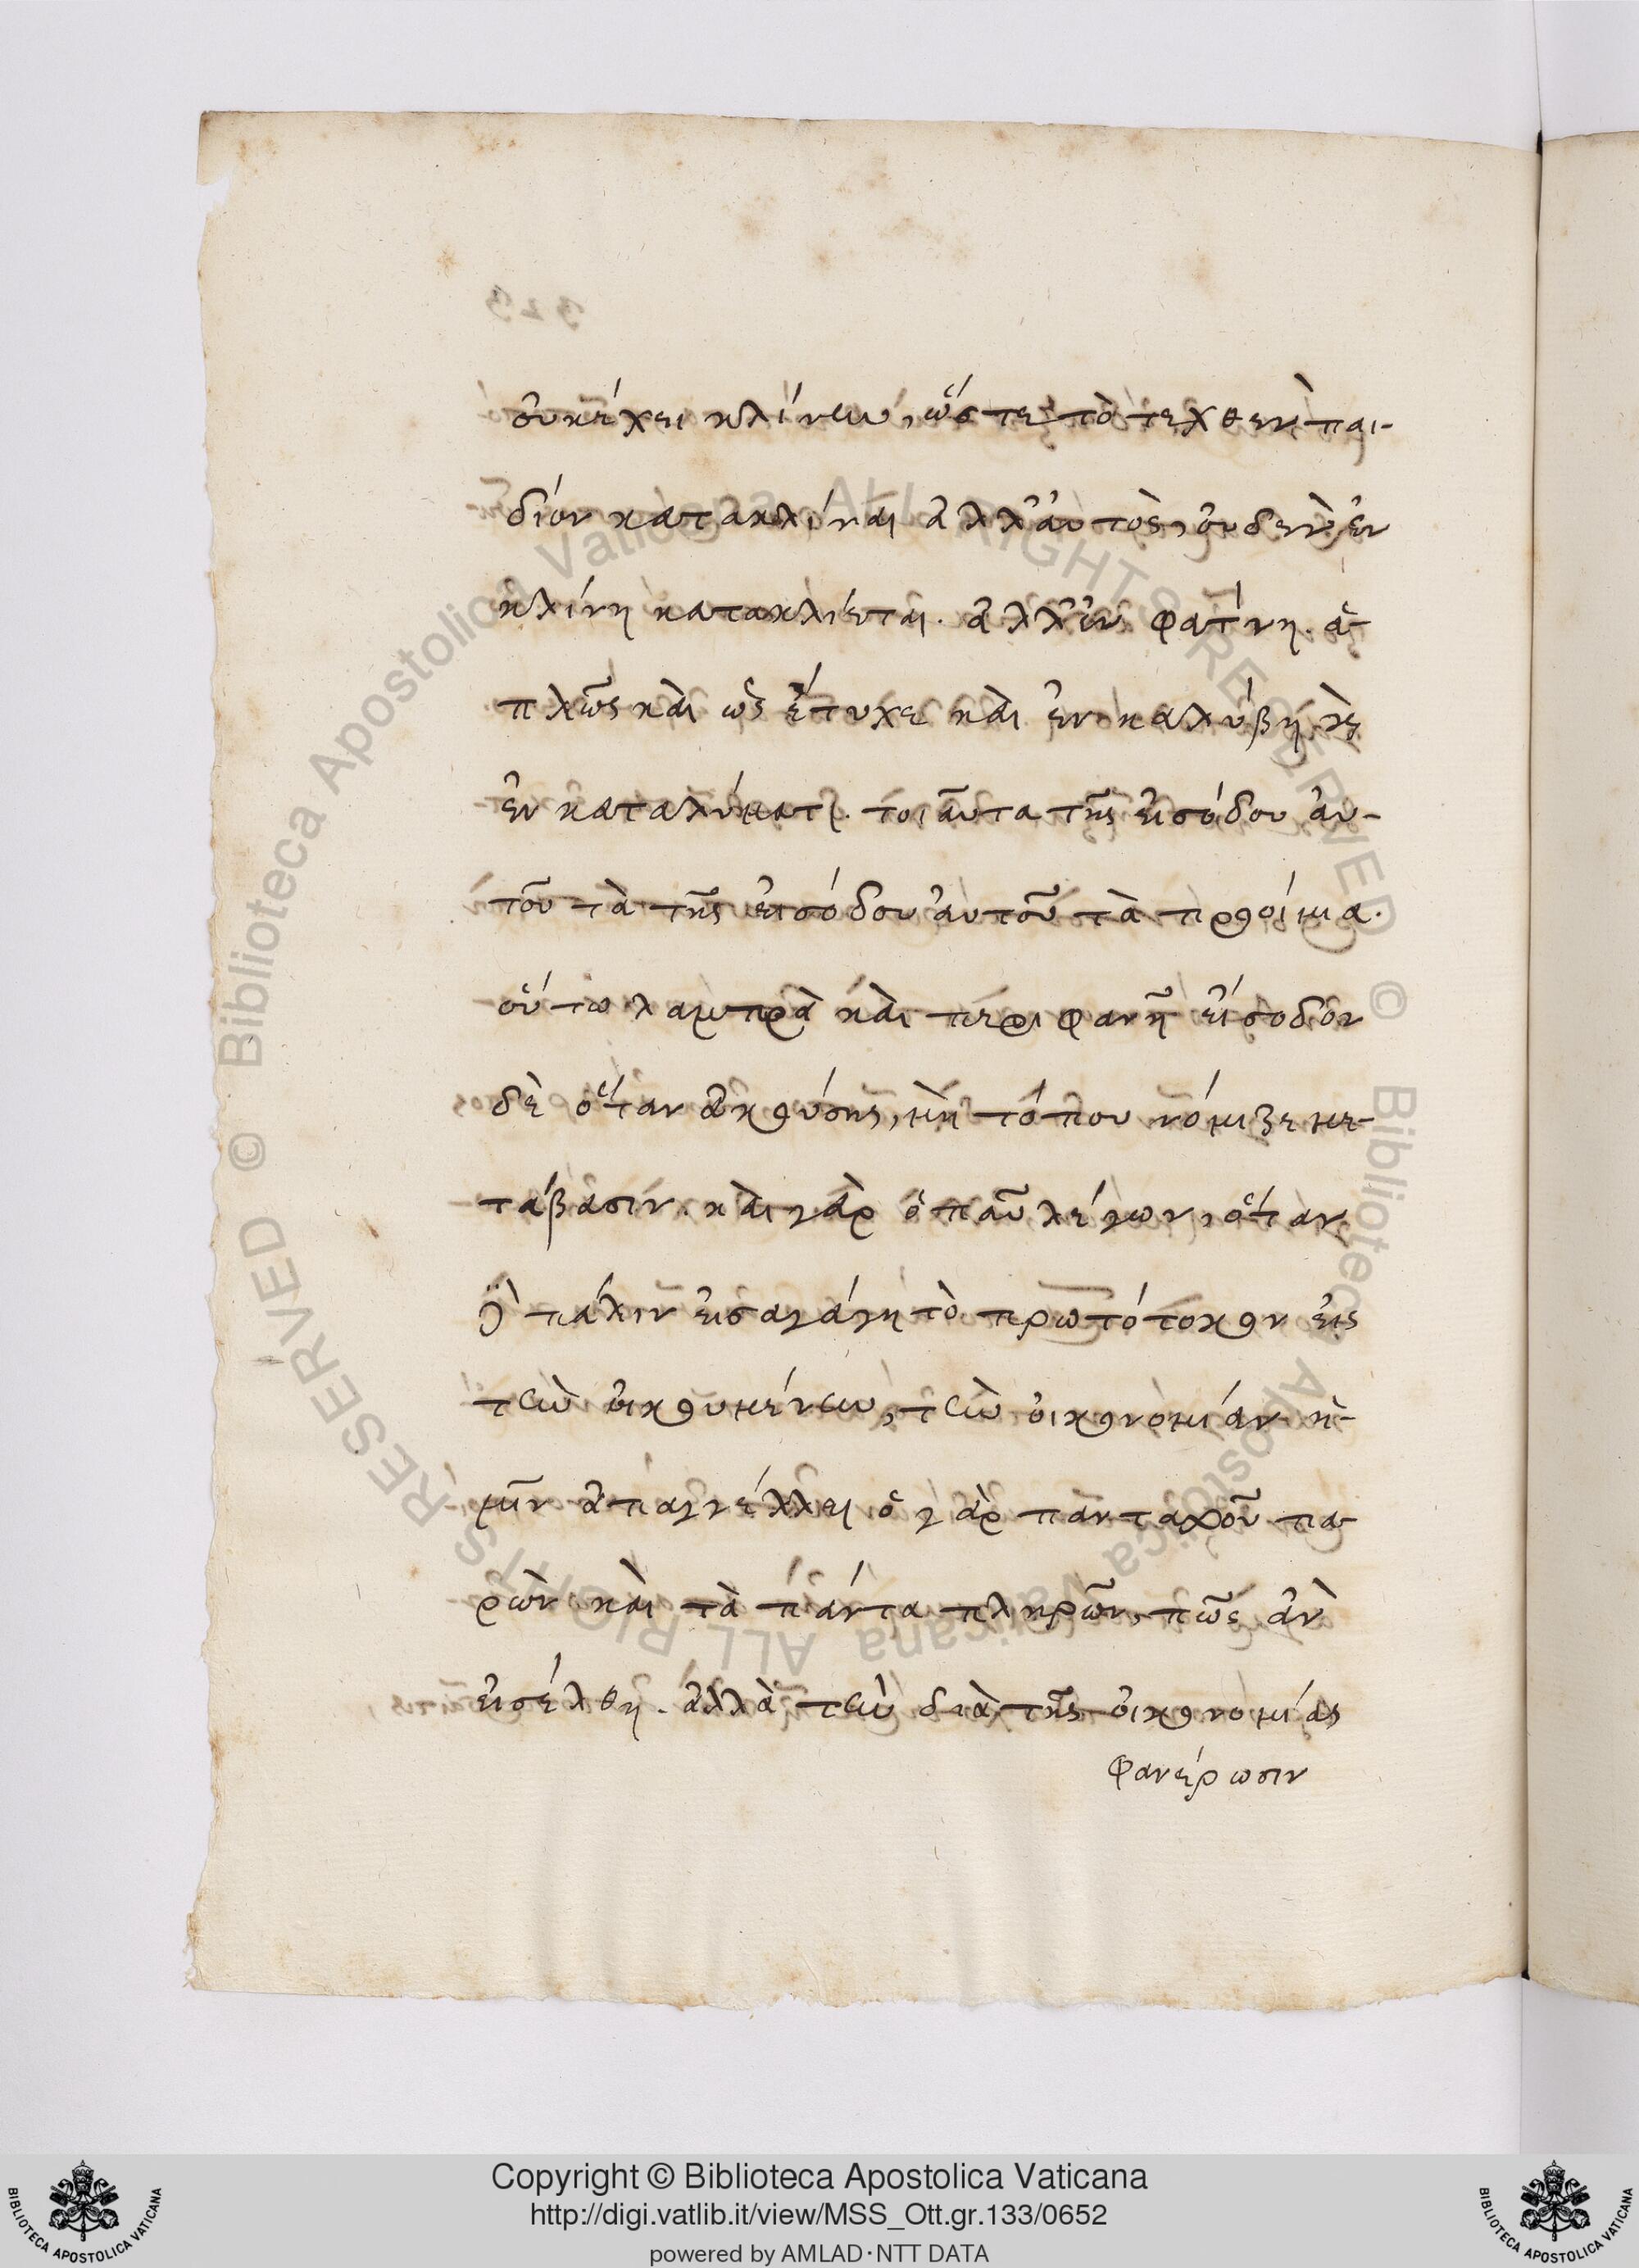 οὐκ ἔχει κλίνην, ὥστε τὸ τεχθὲν παι-
δίον κατακλίναι ἀλλ' αὐτὸς, οὐδὲν ἐν
κλίνη κατακλιέται. ἀλλ' ἐν φάτνη. ἁ-
πλῶς καὶ ὡς ἔτυχε καὶ ἐν καλύβη, καὶ
ἐν καταλύματι. τοιαῦτα τῆς εἰσόδου αὐ-
τοῦ τὰ τῆς εἰσόδου αὐτοῦ τὰ προοίμια.
οὕτω λαμπρὰ καὶ περιφανῆ εἴσοδον
δὲ ὅταν ἀκούσης, μὴ τόπου νόμιζε με-
τάβασιν. καὶ γὰρ ὁ παῦ λέγων, ὅταν
δὲ πάλιν εἰσαγάγη τὸ πρωτότοκον εἰς
τὴν οἰκουμένην, τὴν οἰκονομίαν ἡ-
μῖν ἀπαγγέλλει ὁ γὰρ πανταχοῦ πα-
ρὼν καὶ τὰ πάντα πληρῶν, πῶς ἂν
εἰσέλθη. ἀλλὰ τὴν διὰ τῆς οἰκονομίας
φανέρωσιν
Copyright © Biblioteca Apostolica Vaticana
http://digi.vatlib.it/view/MSS_Ott.gr.133/0652
powered by AMLAD·NTT DATA
BIBLIOTECA APOSTOLICA VATICANA
BIBLIOTECA APOSTOLICA VATICANA
© Biblioteca Apostolica Vaticana ALL RIGHTS RESERVED © Biblioteca Apostolica Vaticana ALL RIGHTS RESERVED